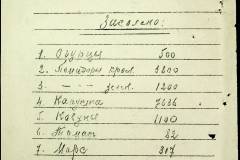 Засолено:
1. Огурци 500
2. Помидоры крас. 5800
3. —„— зелн. 1200
4. Капуста 7686
5. Кавуни 1100
6. Томат 82
7. Морс 307